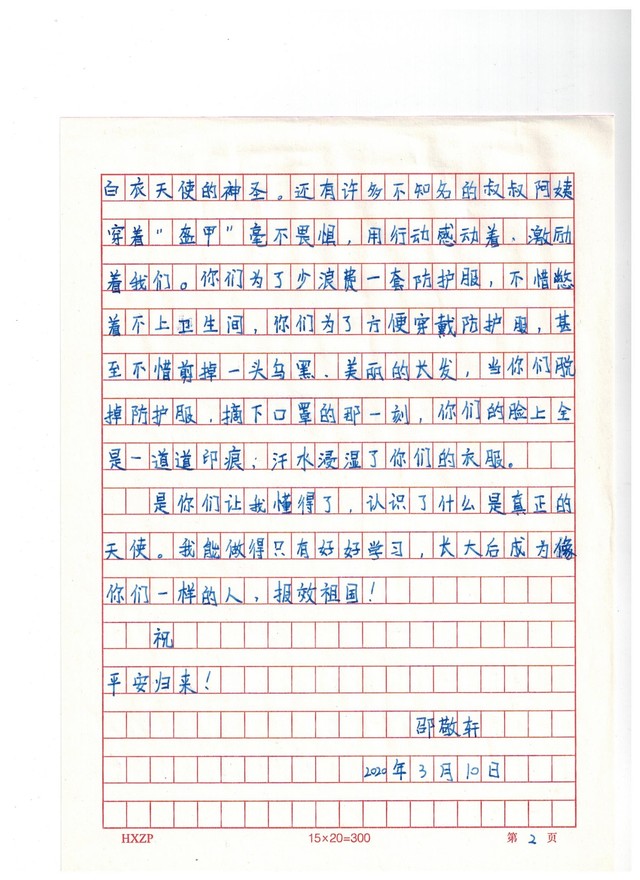 白衣天使的神圣。还有许多不知名的叔叔阿姨
穿着“盔甲”毫不畏惧，用行动感动着、激励
着我们。你们为了少浪费一套防护服，不惜憋
着不上卫生间，你们为了方便穿戴防护服，甚
至不惜剪掉一头乌黑、美丽的长发，当你们脱
掉防护服，摘下口罩的那一刻，你们的脸上全
是一道道印痕；汗水浸湿了你们的衣服。
是你们让我懂得了，认识了什么是真正的
天使。我能做得只有好好学习，长大后成为像
你们一样的人，报效祖国！
祝
平安归来！
邵敬轩
2020年3月10日
HXZP 15×20=300 第2页